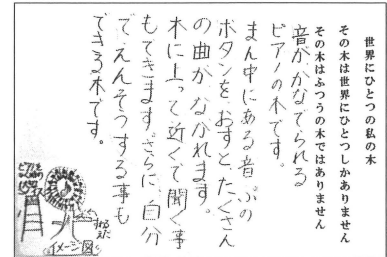 世界にひとつの私の木
その木は世界にひとつしかありません
その木はふつうの木ではありません
音がかなでられる
ピアノの木です。
まん中にある音ぷの
ボタンを、おすと、たくさん
の曲が、ながれます。
木に上って近くで聞く事
もできます。さらに、自分
で、えんそうする事も
できる木です。
イメージ図